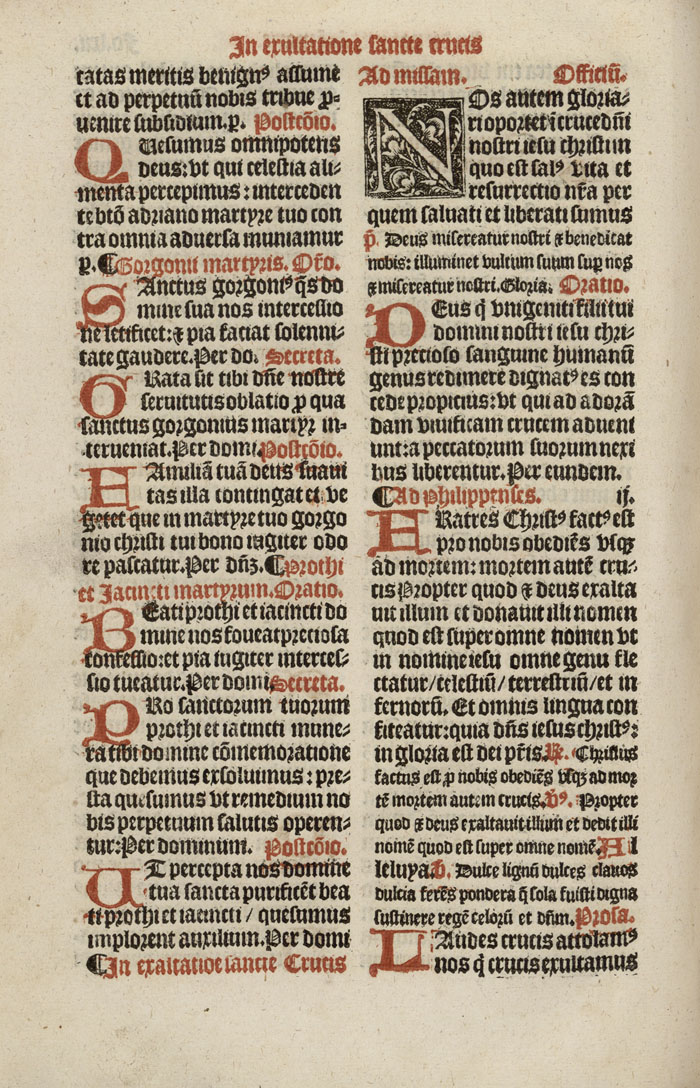 In exultatione sancte crucis
catas meritis benignꝰ assume
et ad perpetuū nobis tribue ꝓ-
uenire subsidium.p. Postcōio.
QUesumus omnipotens
deus: vt qui celestia ali-
menta percepimus: interceden
te btō adriano martyre tuo con
tra omnia aduersa muniamur
p. ¶Gorgonii martyris. Orō.
SAnctus gorgoniꝰ q̄s do
mine sua nos intercessio
ne letificet: ⁊ pia faciat solenni-
tate gaudere. Per do. Secreta.
GRata sit tibi dn̄e nostre
seruitutis oblatio ꝓ qua
sanctus gorgonius martyr in-
terueniat. Per domi. Postcōio.
FAmiliā tuā deus suaui
tas illa contingat et ve
getet que in martyre tuo gorgo
nio christi tui bono iugiter odo
re pascatur. Per dn̄ꝫ. ¶Prothi
et Iacincti martyrum. Oratio.
BEati prothi et iacincti do
mine nos foueat preciosa
confessio: et pia iugiter interces-
sio tueatur. Per domi Secreta.
PRo sanctorum tuorum
prothi et iacincti mune-
ra tibi domine cōmemoratione
que debemus exsoluimus: pre-
sta quesumus vt remedium no
bis perpetuum salutis operen-
tur: Per dominum. Postcōio.
UT percepta nos domine
tua sancta purificēt bea
ti prothi et iacincti / quesumus
implorent auxilium. Per domi
¶In exaltatiōe sancte Crucis
Ad missam. Officiū.
NOs autem gloria-
ri oportet ī cruce dn̄i
nostri iesu christi: in
quo est salꝰ vita et
resurrectio nr̄a per
quem saluati et liberati sumus
p̄. Deus misereatur nostri ⁊ benedicat
nobis: illuminet vultum suum sup nos
⁊ misereatur nostri. Gloria. Oratio.
DEus q̄ vnigeniti filii tui
domini nostri iesu chri-
sti precioso sanguine humanū
genus redimere dignatꝰ es con
cede propicius: vt qui ad adorā
dam viuificam crucem adueni
unt: a peccatorum suorum nexi
bus liberentur. Per eundem.
¶Ad Philippenses. ij.
FRatres Christꝰ factꝰ est
pro nobis obediēs vsqꝫ
ad mortem: mortem autē cru-
cis Propter quod ⁊ deus exalta
uit illum et donauit illi nomen
quod est super omne nomen vt
in nomine iesu omne genu fle
ctatur/celestiū/terrestriū/et in
fernorū. Et omnis lingua con
fiteatur: quia dn̄s iesus christꝰ:
in gloria est dei pr̄is. ℟. Christus
factus est ꝓ nobis obediēs vsqꝫ ad mor
tē mortem autem crucis. ℣ꝰ. Propter
quod ⁊ deus exaltauit illum et dedit illi
nomē quod est super omne nomē. Al
leluya. ℣. Dulce lignū dulces clauos
dulcia ferēs pondera q̄ sola fuisti digna
sustinere regē celorū et dn̄m. Prosa.
LAudes crucis attolamꝰ
nos q̄ crucis exultamus